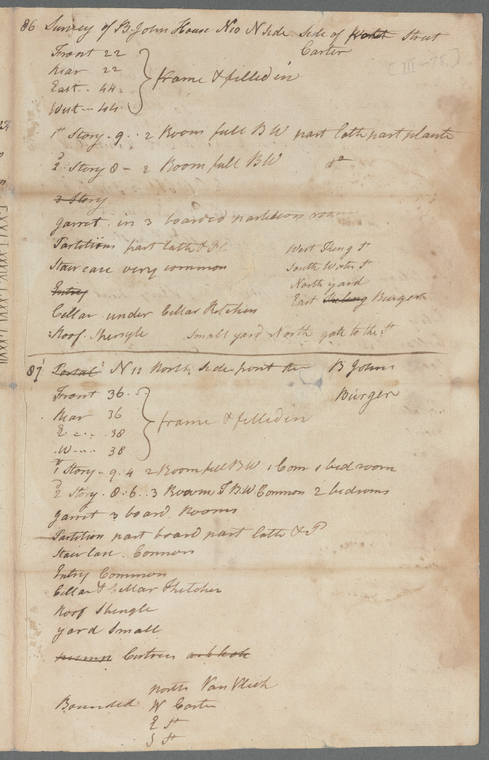 86 Survey of B. John House No 10 N Side Side of Water Street
Carter
[III-78]
Front 22
Rear 22
East - 44
West - 44
frame & filled in
1st Story - 9 - 2 Room full BW part lath part
2d Story 8 - 2 Room full BW
2 Story
garret in 3 boarded partition
Partitions part lath & Pl
Stair case very common
Entry
Cellar under Cellar Kitchen
Roof Shingle
West Slung St
South Water St
North yard
East Burger
Small yard North gate to the St
87 No 11 North Side B Johns
Burger
Front 36
Rear 36
E - 38
W - 38
frame & filled in
1 Story - 9.4 2 Room full BW 1 Com 1 bed room
2 Story - 8.6 - 3 Rooms BW Common 2 bedrooms
garret 3 board Rooms
Partition part board part lath & P
Stair Case Common
Entry Common
Cellar & Cellar Kitchen
Roof Shingle
yard Small
Cistern
Bounded North Van Vlick
W Carter
E St
S St